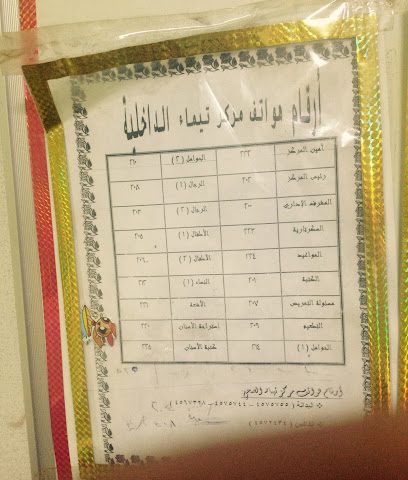 أرقام هواتف مركز تيماء الداخلية
أمين المركز ٢٢٢ الحوامل (٢) ٢١٠
رئيس المركز ٢٠٢ الرجال (١) ٢٠٨
المشرف الإداري ٢٠٠ الرجال (٢) ٢٠٣
السكرتارية ٢٢٣ الأطفال (١) ٢٠٥
المواعيد ٢٢٤ الأطفال (٢) ٢٠٦
الكتبة ٢٠١ النساء (١)
مسئولة التمريض ٢٠٧ الأشعة ٢٢١
التطعيم ٢٠٩ استراحة الأسنان ٢٢٠
الحوامل (١) كتبة الأسنان ٢٢٥
أرقام هواتف مركز تيماء الصحي
٤٥٧٥٧٥٥ - ٤٥٧٥٧٤٤ - ٤٥٦٧٣٩٨